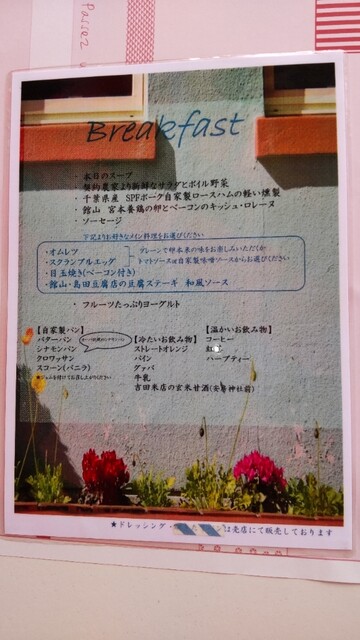 Passez
Breakfast
・本日のスープ
・契約農家より新鮮なサラダとボイル野菜
・千葉県産 SPFポーク自家製ロースハムの軽い燻製
・館山 宮本養鶏の卵とベーコンのキッシュ・ロレーヌ
・ソーセージ
下記よりお好きなメイン料理をお選びください
・オムレツ
・スクランブルエッグ
プレーンで卵本来の味をお楽しみいただくか
トマトソースor自家製味噌ソースからお選びください
・目玉焼き(ベーコン付き)
・館山・島田豆腐店の豆腐ステーキ 和風ソース
・フルーツたっぷりヨーグルト
【自家製パン】
バターパン
シナモンパン
クロワッサン
スコーン(バニラ)
★ジャムを付けてお召し上がりください
【冷たいお飲み物】
ストレートオレンジ
パイン
グァバ
牛乳
吉田米店の玄米甘酒(安房神社前)
【温かいお飲み物】
コーヒー
紅茶
ハーブティー
★ドレッシング・
は売店にて販売しております